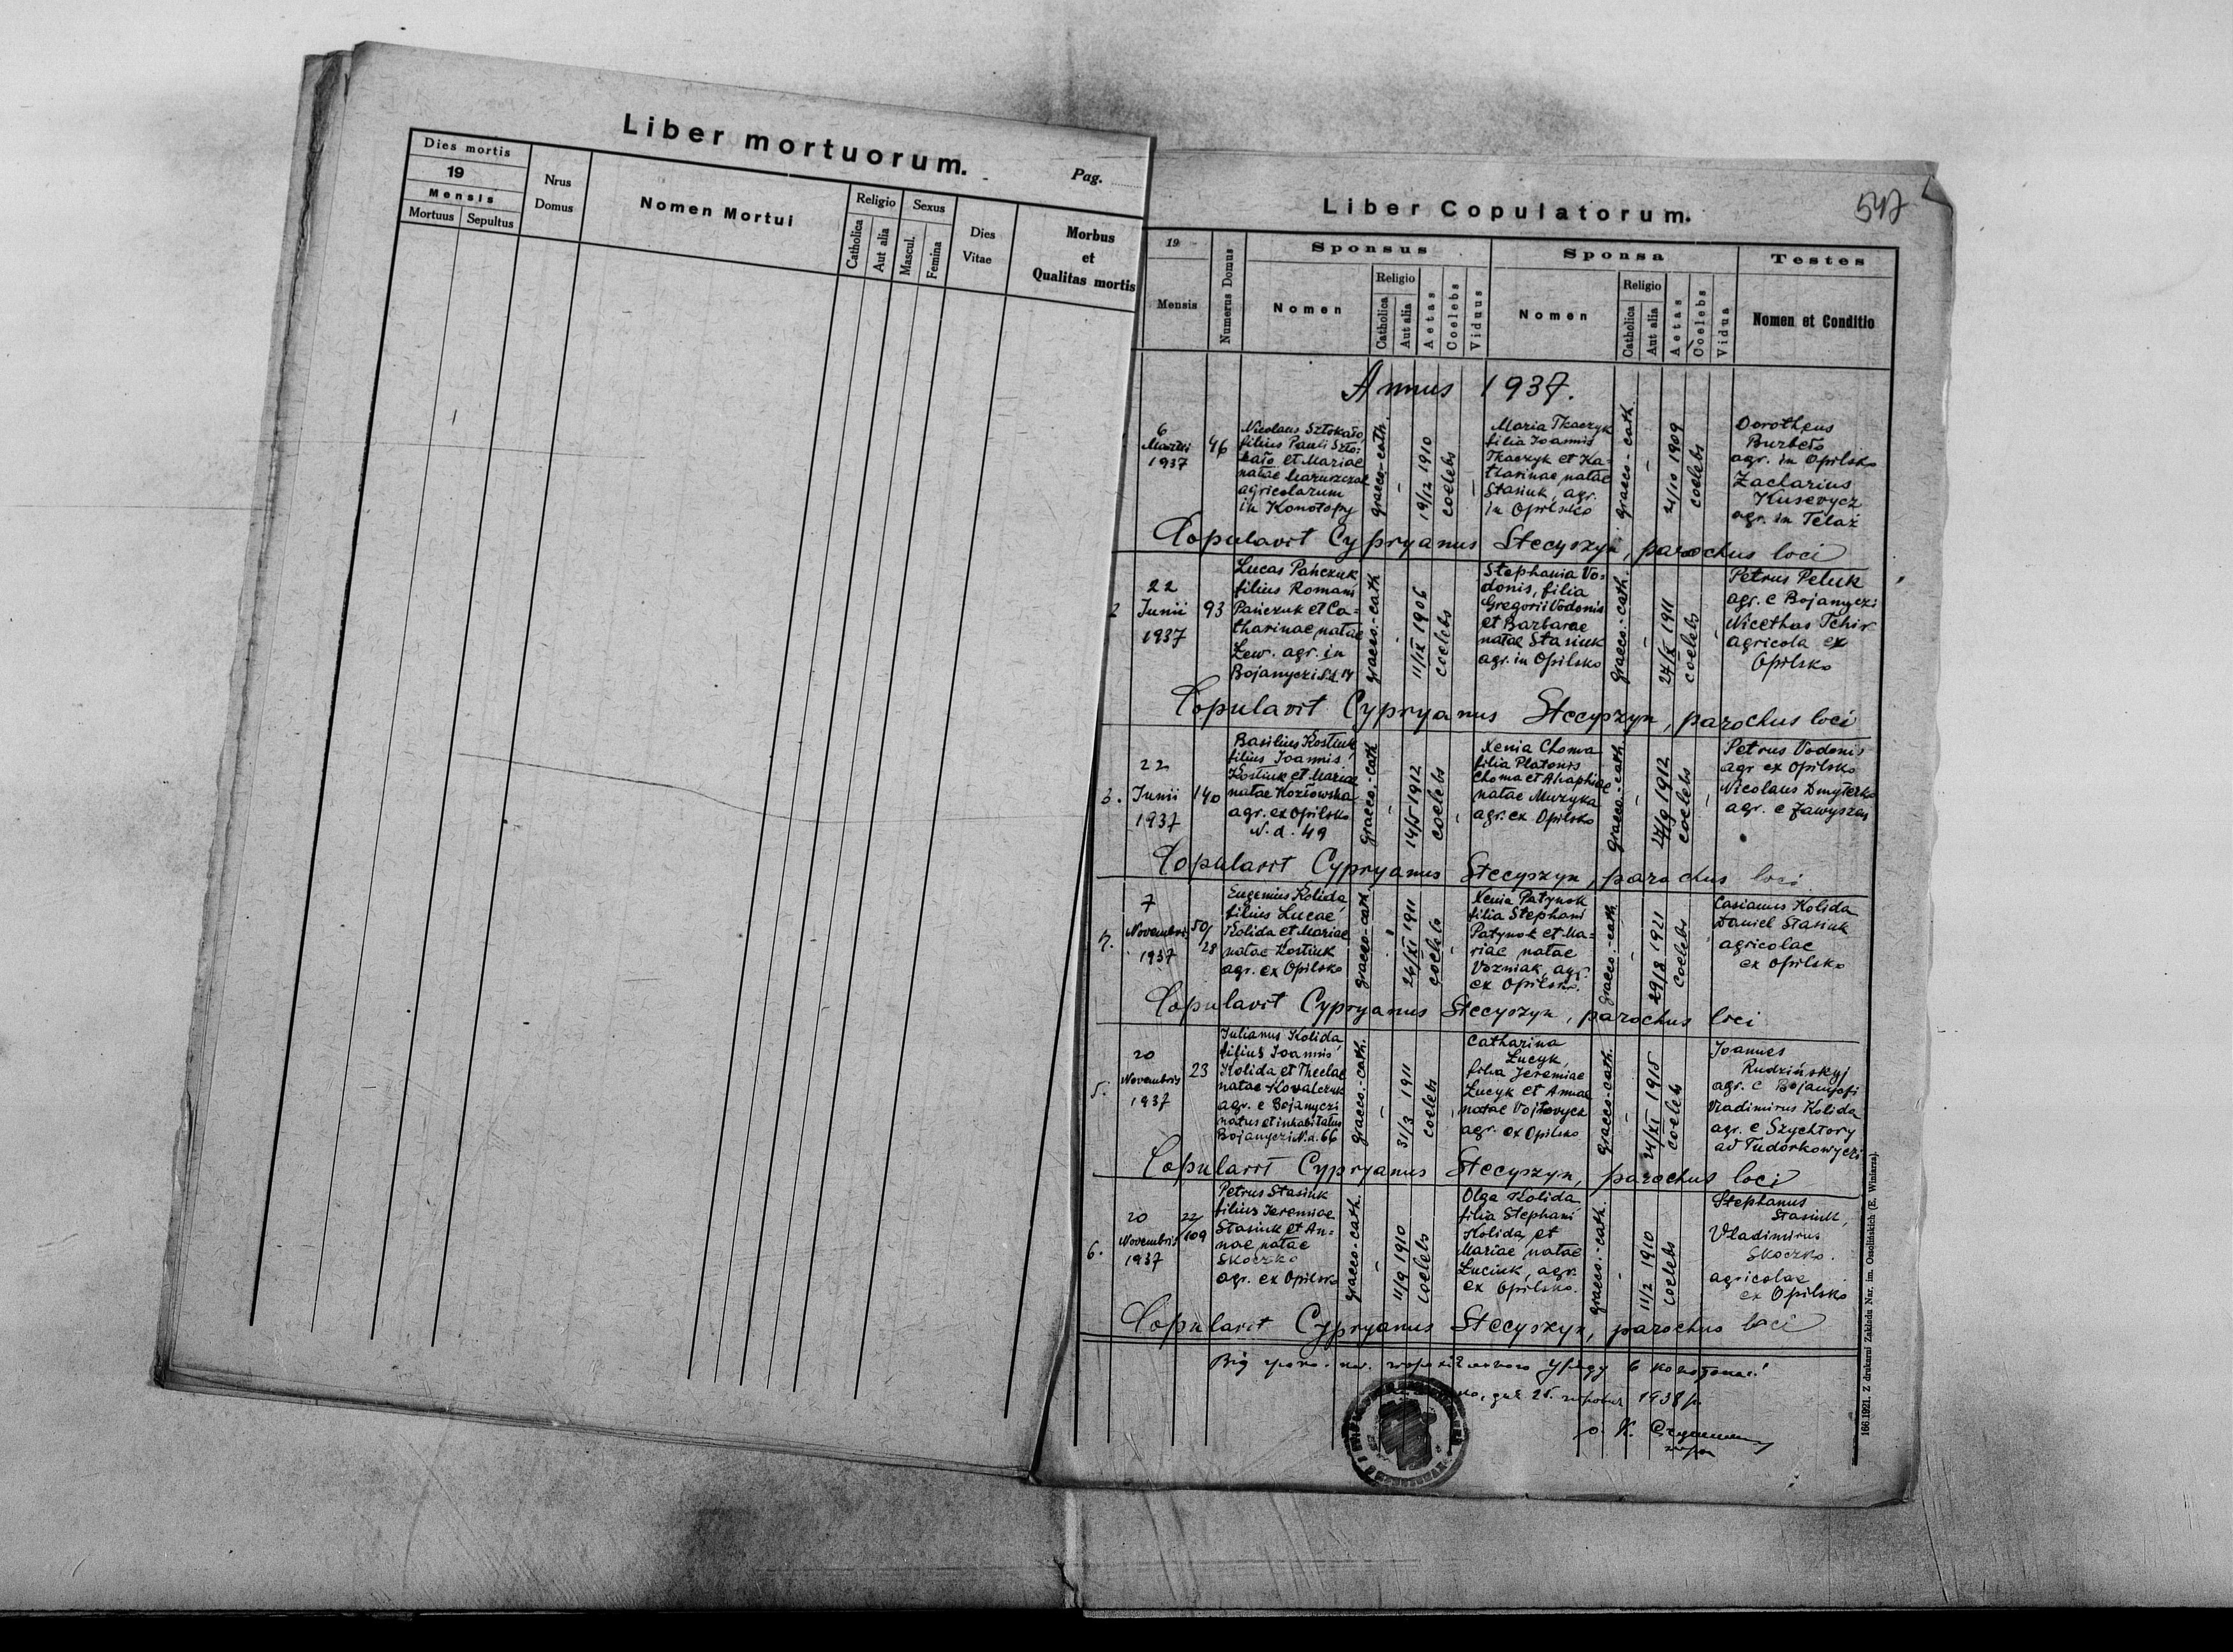 Liber mortuorum.
Pag.
Dies mortis
19
Mensis
Mortuus
Sepultus
Nrus
Domus
Nomen Mortui
Religio
Catholica
Aut alia
Sexus
Mascul.
Femina
Dies
Vitae
Morbus
et
Qualitas mortis
Liber Copulatorum.
547
19
Mensis
Numerus Domus
Sponsus
Nomen
Religio
Catholica
Aut alia
Aetas
Coelebs
Viduus
Sponsa
Nomen
Religio
Catholica
Aut alia
Aetas
Coelebs
Vidua
Testes
Nomen et Conditio
Annus 1937.
6
1937
46
Nicolaus Sztokało,
filius Pauli Szto-
kało et Mariae
natae
agricolarum
in Konotopy
graeco-cath.
19/12 1910
coelebs
Maria Tkaczyk
filia Joannis
Tkaczyk et Ka-
tharinae natae
Stasiuk, agr.
in Opilsko
graeco-cath.
21/10 1909
coelebs
Dorotheus
Burbeło
agr. in Opilsko
Zacharius
Kusevycz
agr. in Telaż
Copulavit Cypryanus Stecyszyn, parochus loci
2
22
Junii
1937
93
Lucas Pańczuk
filius Romani
Pańczuk et Ca-
tharinae natae
Lew. agr. in
Bojanyczi
graeco.-cath
11/IX 1906
coelebs
Stephania Vo-
donis, filia
Gregorii Vodonis
et Barbarae
natae Stasiuk
agr. in Opilsko
graeco.-cath.
1911
coelebs
Petrus Peluk
agr. e Bojanyczi
Nicethas Tchir
agricola ex
Opilsko
Copulavit Cypryanus Stecyszyn, parochus loci
3.
22
Junii
1937
140
Basilius Kostiuk
filius Joannis
Kostiuk et Mariae
natae Kozłowska
agr. ex Opilsko
N. d. 49
graeco.-cath
14/5 1912
coelebs
Xenia Choma
filia Platonis
Choma et Ahaphiae
natae Muzyka
agr. ex Opilsko
graeco.-cath
27/9 1912
coelebs
Petrus Vodonis
agr ex Opilsko
Nicolaus Dmyterko
agr. e Zawyszen
Copulavit Cypryanus Stecyszyn, parochus loci
7
Novembris
1937
50/
28
Eugenius Kolida,
filius Lucae
Kolida et Mariae
natae Kostiuk
agr. ex Opilsko
graeco-cath.
26/XI 1911
coelebs
Xenia Patynok
filia Stephani
Patynok et Ma-
riae natae
Vozniak, agr.
ex Opilsko.
graeco.-cath
29/8 1921
coelebs
Casianus Kolida
Daniel Stasiuk
agricolae
ex Opilsko
Copulavit Cypryanus Stecyszyn, parochus loci
5.
20
Novembris
1937
23
Julianus Kolida,
filius Joannis
Kolida et Theclae
natae Kowalczuk
agr. e Bojanyczi
natus et inhabitatus
Bojanyczi N.d. 66
graeco.-cath.
31/3 1911
coelebs
Catharina
Lucyk,
filia Jeremiae
Lucyk et Annae
natae Vojtovycz
agr. ex Opilsko
graeco-cath.
24/XI 1915
coelebs
Joannes
Rudzińskyj
agr. e
Vladimirus Kolida
agr. e Szychtory
ad Tudorkowyczi
Copulavit Cypryanus Stecyszyn, parochus loci
6.
20
Novembris
1937
22/
109
Petrus Stasiuk
filius Jeremiae
Stasiuk et An-
nae natae
Skoczko
agr. ex Opilsko
graeco-cath.
11/9 1910
coelebs
Olga Kolida
filia Stephani
Kolida et
Mariae natae
Luciuk, agr.
ex Opilsko.
graeco.-cath.
11/2 1910
coelebs
Stephanus
Stasiuk,
Vladimirus
Skoczko.
agricolae
ex Opilsko
Copulavit Cypryanus Stecyszyn, parochus loci
Від
1938 р.
о. К.
166.1921. Z drukarni Zakładu Nar. im. Ossolińskich (E. Winiarza).